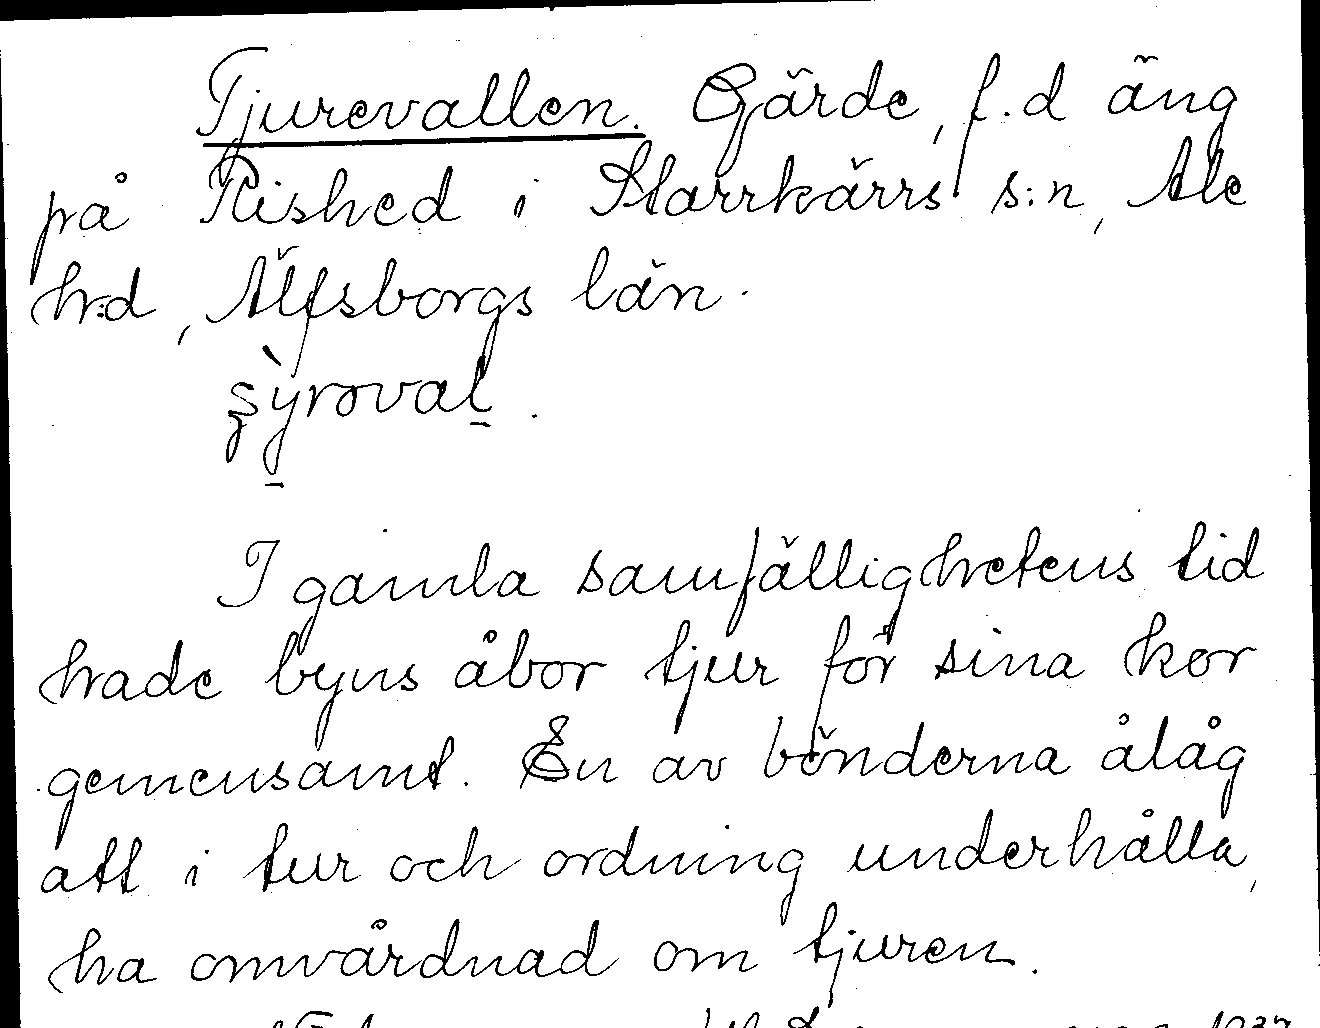 Tjurevallen. Gärde, f.d äng
på Rished i Starrkärrs s:n, Ale
h:d, Älfsborgs län.
I gamla samfällighetens tid
hade byns åbor tjur för sina kor
gemensamt. En av bönderna ålåg
att i tur och ordning underhålla,
ha omvårdnad om tjuren.
1937